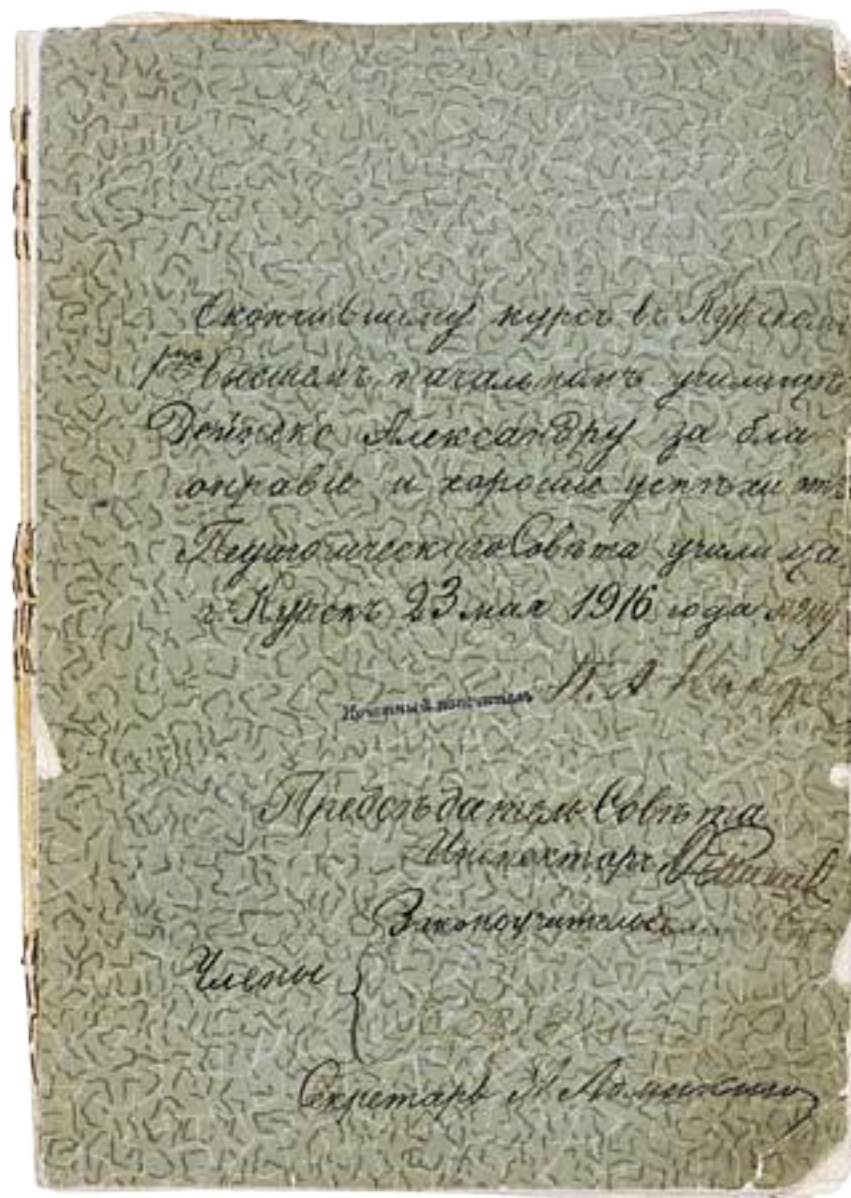 Окончившему курсъ въ Курскомъ
1мъ высшемъ начальномъ училищѣ
Дейнеко Александру за бла
гонравіе и хорошіе успѣхи отъ
Педагогическаго Совѣта училища
г. Курскъ 23 мая 1916 года
Почетный попечитель П. А.
Предсѣдатель Совѣта
Инспекторъ
Законоучитель
Члены
Секретарь